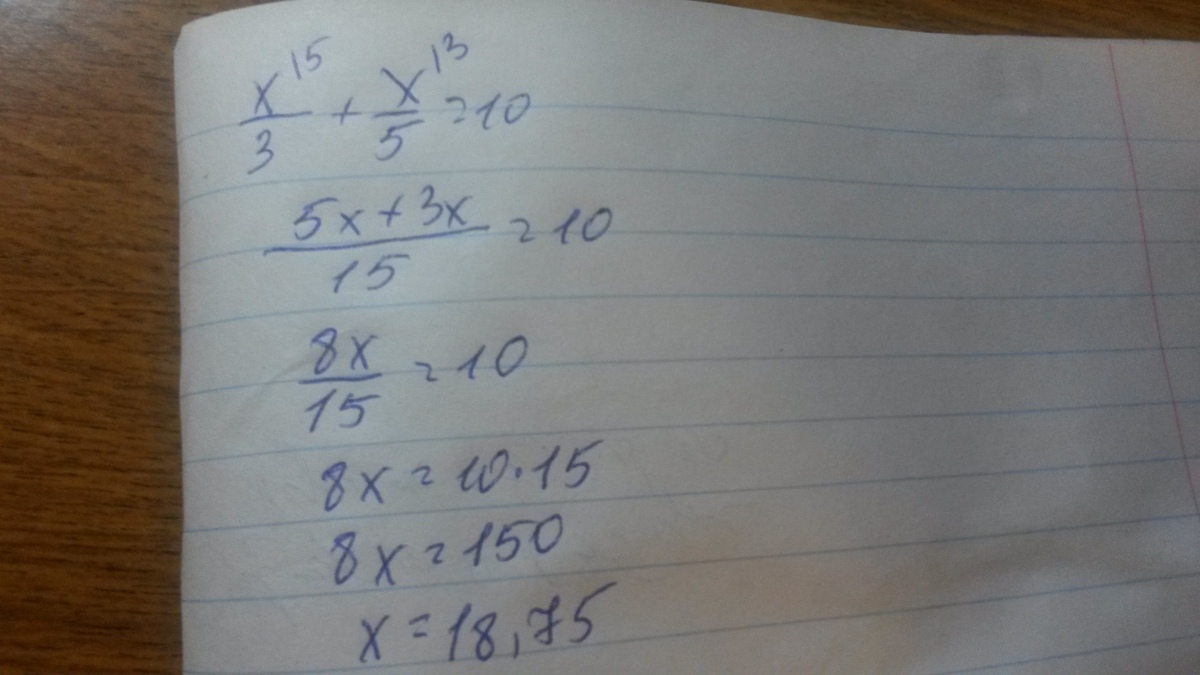 x^15/3 + x^13/5 = 10
(5x+3x)/15 = 10
8x/15 = 10
8x = 10·15
8x = 150
x = 18,75